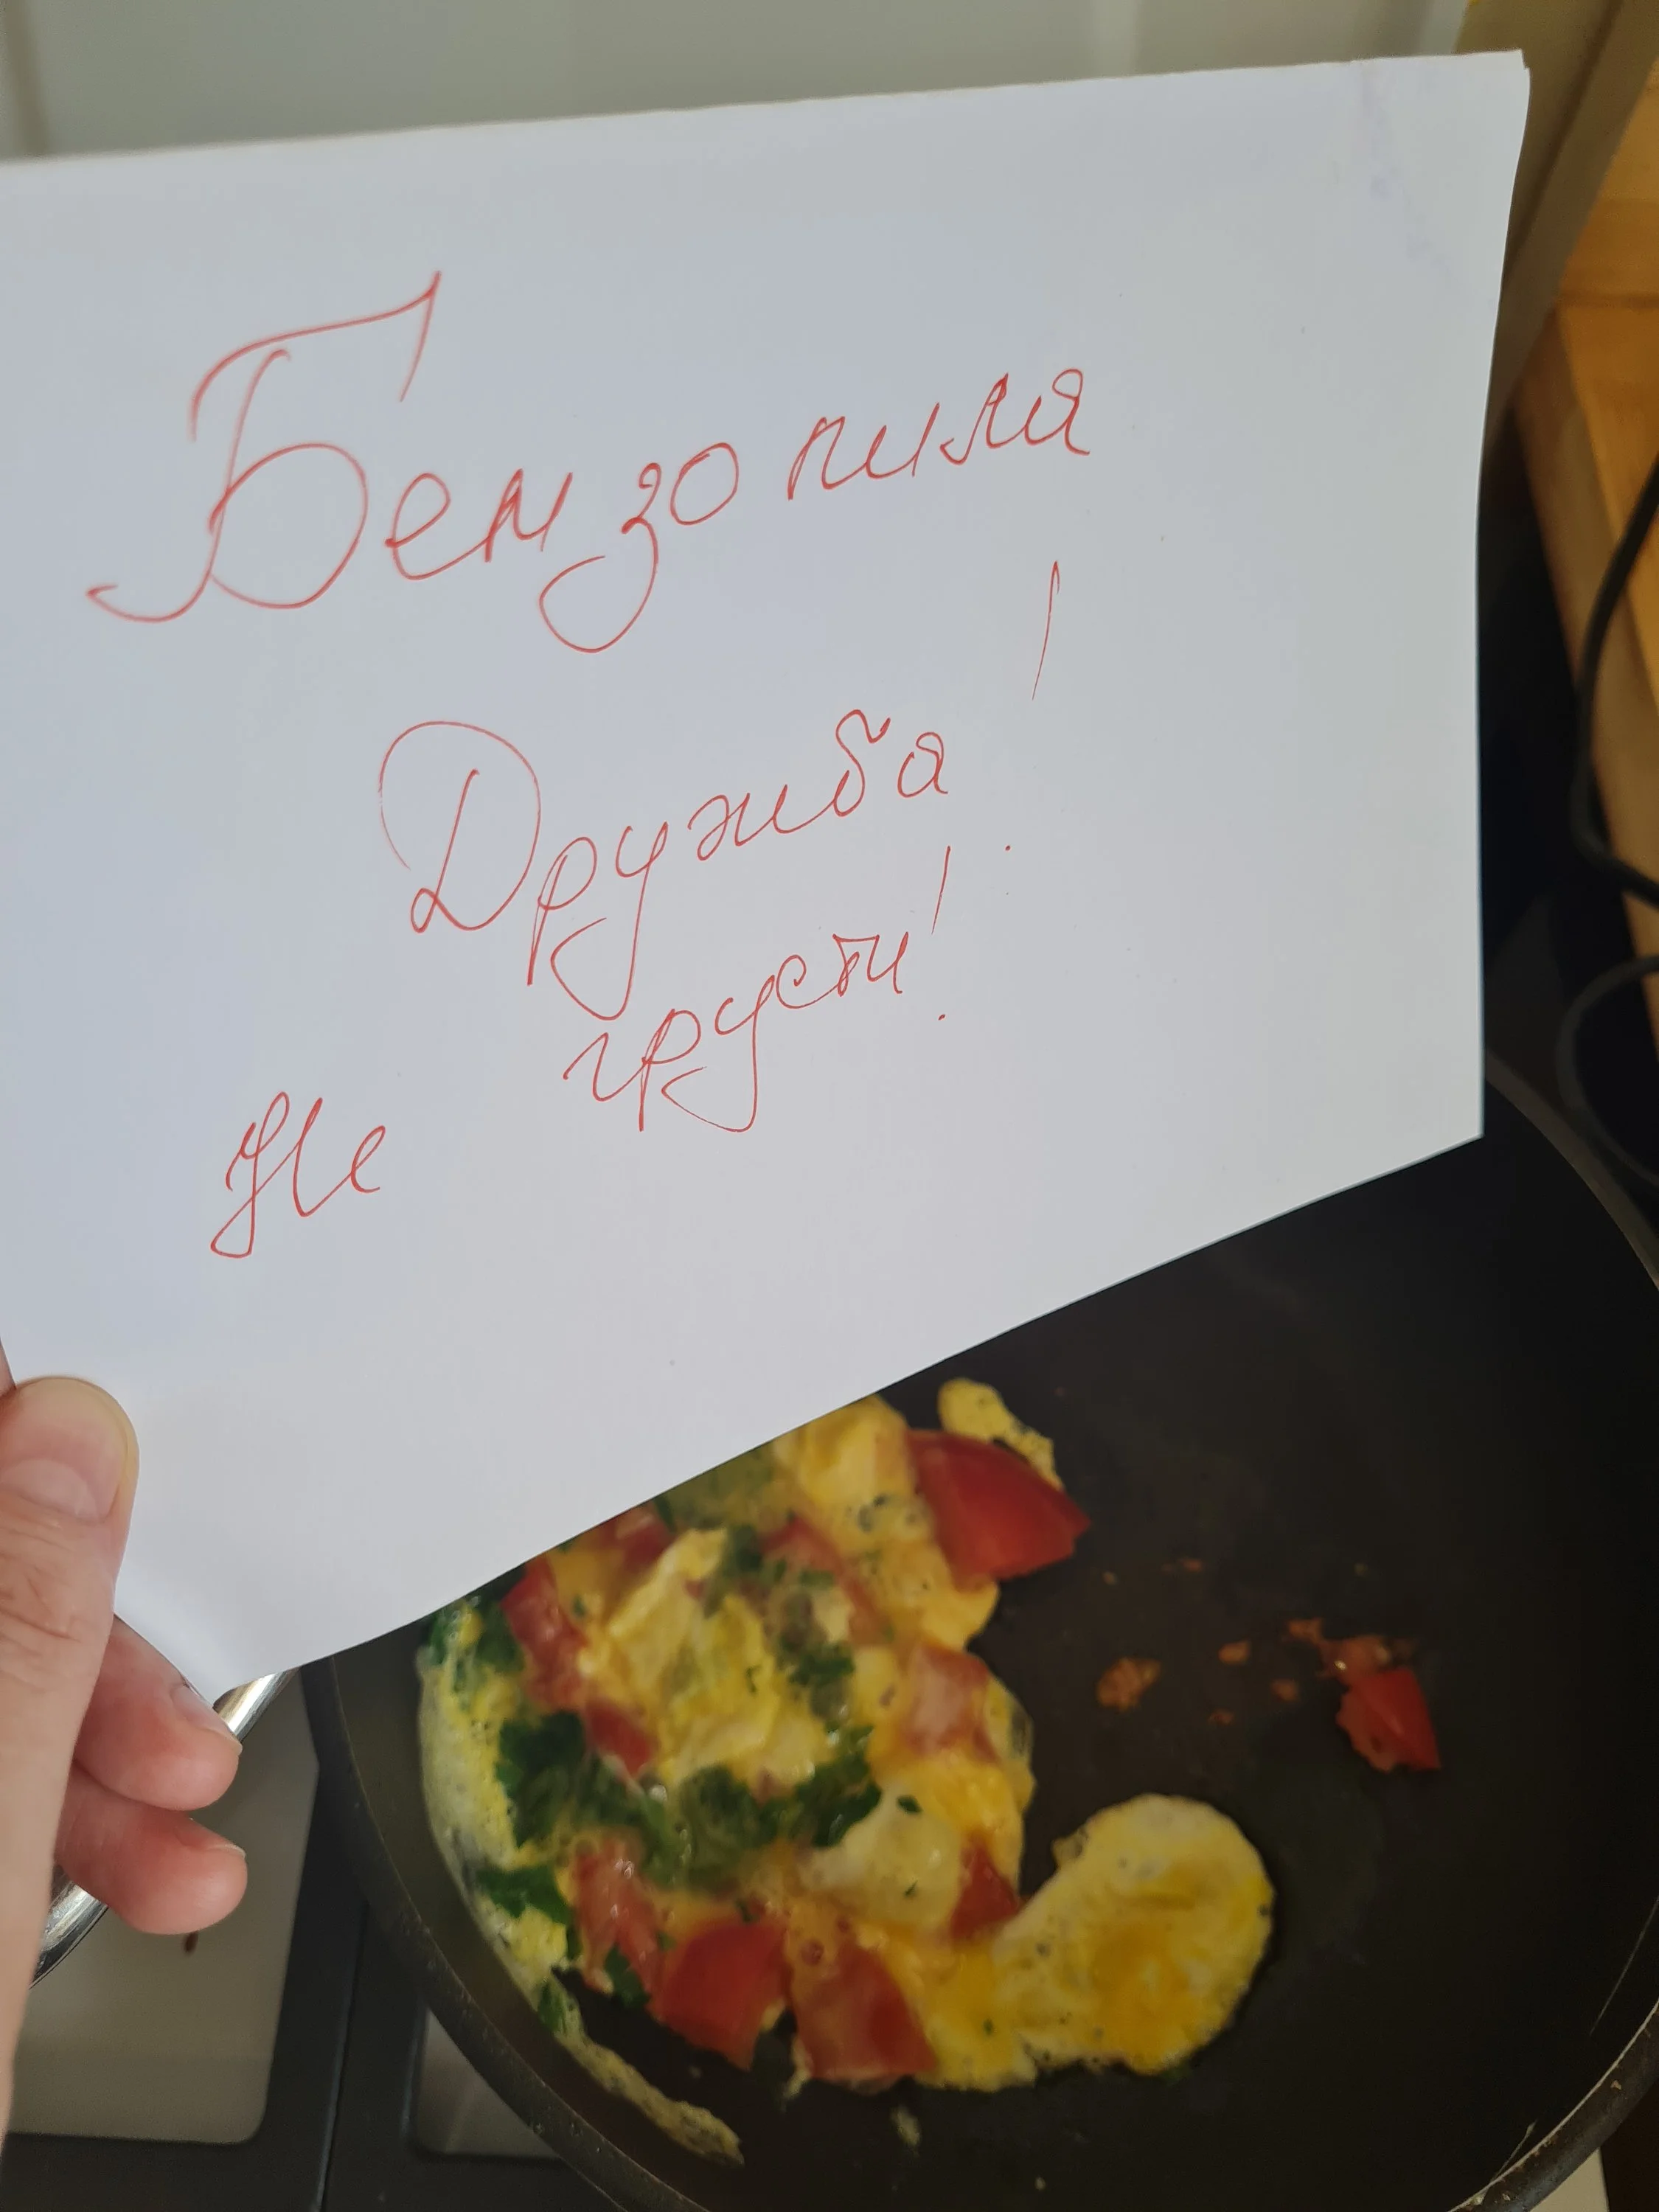 Бензопила
Дружба!
Не грусти!